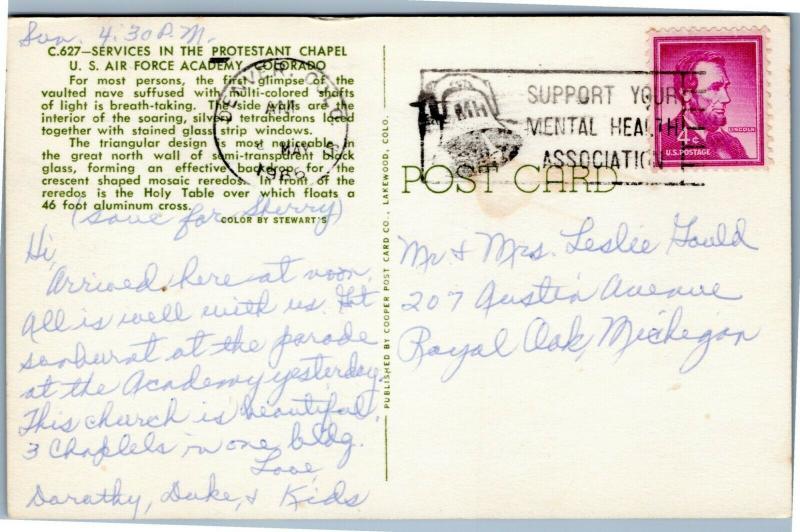 Sun. 4:30 P.M.
C.627—SERVICES IN THE PROTESTANT CHAPEL
U. S. AIR FORCE ACADEMY, COLORADO
For most persons, the first glimpse of the
vaulted nave suffused with multi-colored shafts
of light is breath-taking. The side walls are the
interior of the soaring, silver tetrahedrons laced
together with stained glass strip windows.
The triangular design is most noticeable in
the great north wall of semi-transparent black
glass, forming an effective backdrop for the
crescent shaped mosaic reredos. In front of the
reredos is the Holy Table over which floats a
46 foot aluminum cross.
COLOR BY STEWART'S
(save for Sherry)
Hi,
Arrived here at noon.
All is well with us. Got
sunburnt at the parade
at the Academy yesterday.
This church is beautiful,
3 Chaplels in one bldg.
Love,
Dorathy, Duke, & Kids
PUBLISHED BY COOPER POST CARD CO., LAKEWOOD, COLO.
DENVER, COLO.
MAY
MH
SUPPORT YOUR
MENTAL HEALTH
ASSOCIATION
LINCOLN
4¢
U.S. POSTAGE
POST CARD
Mr & Mrs. Leslie Gould
207 Austin Avenue
Royal Oak, Michegan